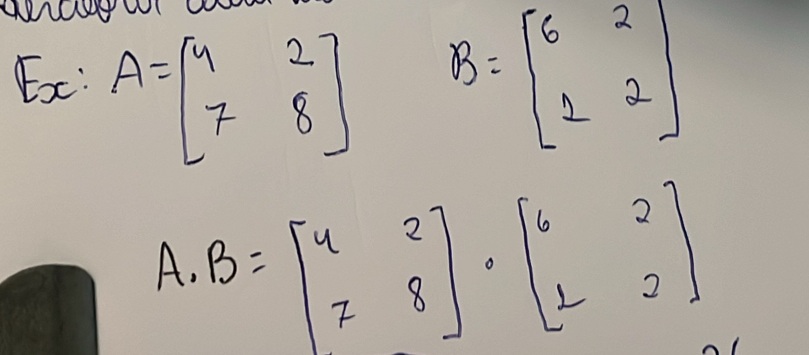 Ex: A = [4 2
7 8] B = [6 2
2 2]
A.B = [4 2
7 8] · [6 2
2 2]